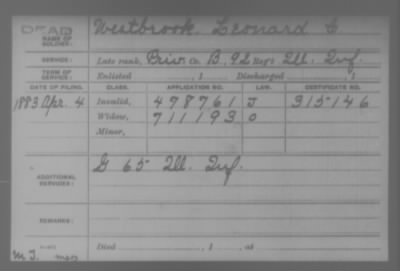 DEAD
NAME OF SOLDIER: Westbrook, Leonard C.
SERVICE: Late rank, Priv. Co. B, 92 Reg't Ill. Inf.
TERM OF SERVICE: Enlisted , 1 Discharged , 1
DATE OF FILING. CLASS. APPLICATION NO. LAW. CERTIFICATE NO.
1883 Apr. 4 Invalid, 478761 J 315146
Widow, 711193 O
Minor,
ADDITIONAL SERVICES: G 65 Ill. Inf.
REMARKS:
Died , 1 , at